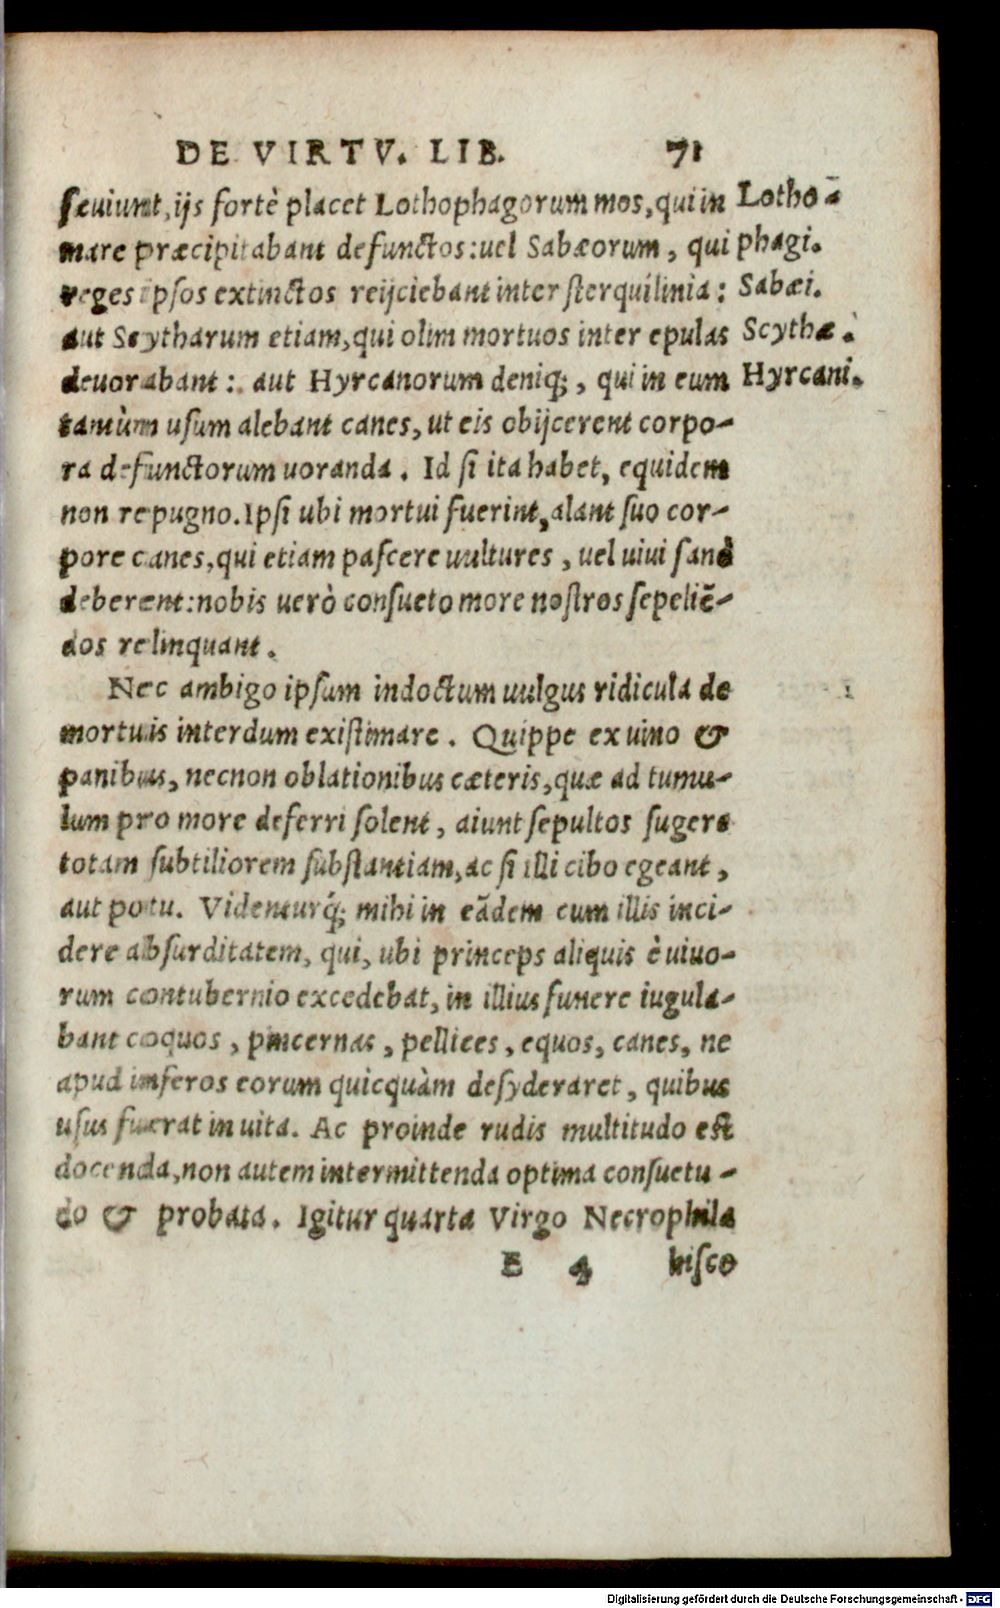 DE VIRTV. LIB. 71
sæuiunt, ijs fortè placet Lothophagorum mos, qui in
Lotho-
mare præcipitabant defunctos: uel Sabæorum, qui
phagi.
reges ipsos extinctos reijciebant inter sterquilinia:
Sabæi.
aut Scytharum etiam, qui olim mortuos inter epulas
Scythæ.
deuorabant: aut Hyrcanorum deniq;, qui in eum
Hyrcani.
tantùm usum alebant canes, ut eis obijcerent corpo-
ra defunctorum uoranda. Id si ita habet, equidem
non repugno. Ipsi ubi mortui fuerint, alant suo cor-
pore canes, qui etiam pascere uultures, uel uiui sanè
deberent: nobis uerò consueto more nostros sepeliẽ-
dos relinquant.
Nec ambigo ipsum indoctum uulgus ridicula de
mortuis interdum existimare. Quippe ex uino &
panibus, necnon oblationibus cæteris, quæ ad tumu-
lum pro more deferri solent, aiunt sepultos sugere
totam subtiliorem substantiam, ac si illi cibo egeant,
aut potu. Videnturq́; mihi in eãdem cum illis inci-
dere absurditatem, qui, ubi princeps aliquis è uiuo-
rum contubernio excedebat, in illius funere iugula-
bant coquos, pincernas, pellices, equos, canes, ne
apud inferos eorum quicquàm desyderaret, quibus
usus fuerat in uita. Ac proinde rudis multitudo est
docenda, non autem intermittenda optima consuetu-
do & probata. Igitur quarta Virgo Necrophila
E 4 hisce
Digitalisierung gefördert durch die Deutsche Forschungsgemeinschaft - DFG